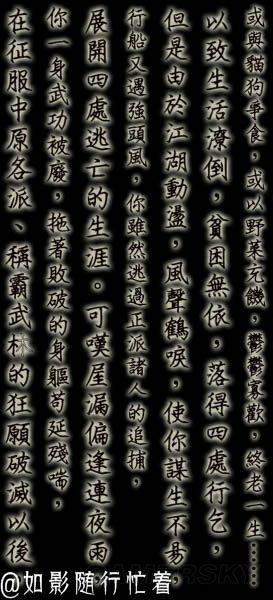 在征服中原各派、稱霸武林的狂願破滅以後
你一身武功被廢，拖著敗破的身軀苟延殘喘，
展開四處逃亡的生涯。可嘆屋漏偏逢連夜雨，
行船又遇強頭風，你雖然逃過正派諸人的追捕，
但是由於江湖動盪，風聲鶴唳，使你謀生不易，
以致生活潦倒，貧困無依，落得四處行乞，
或與貓狗爭食，或以野菜充饑，鬱鬱寡歡，終老一生……
@如影随行忙着